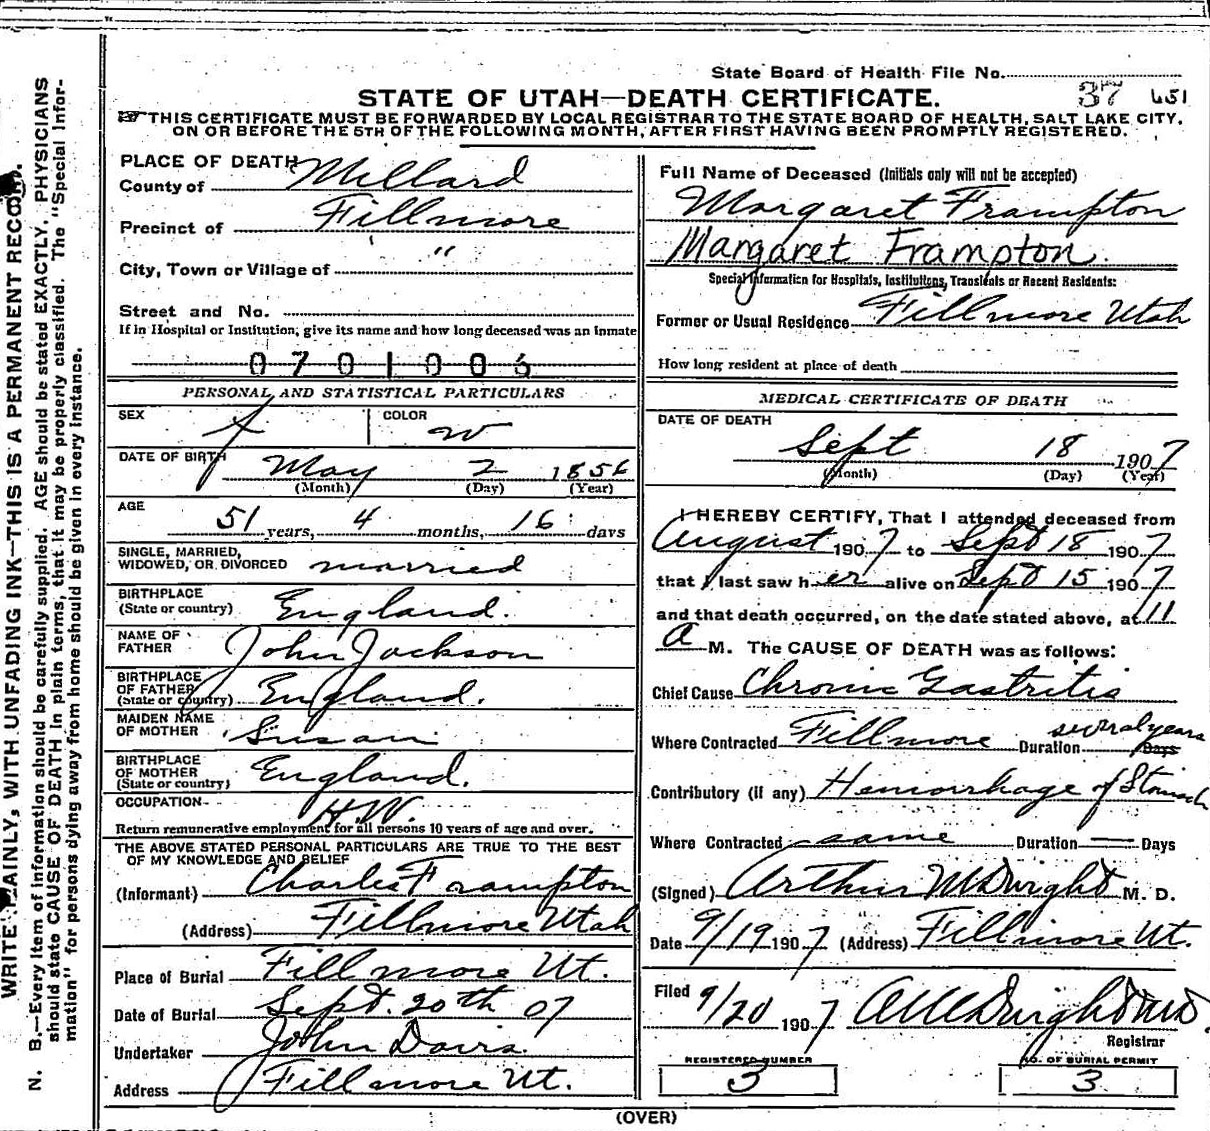 State Board of Health File No.
STATE OF UTAH—DEATH CERTIFICATE. 37 651
THIS CERTIFICATE MUST BE FORWARDED BY LOCAL REGISTRAR TO THE STATE BOARD OF HEALTH, SALT LAKE CITY,
ON OR BEFORE THE 5TH OF THE FOLLOWING MONTH, AFTER FIRST HAVING BEEN PROMPTLY REGISTERED.
PLACE OF DEATH
County of Millard
Precinct of Fillmore
City, Town or Village of "
Street and No.
If in Hospital or Institution, give its name and how long deceased was an inmate
PERSONAL AND STATISTICAL PARTICULARS
SEX f COLOR W
DATE OF BIRTH May 2 1856
(Month) (Day) (Year)
AGE
51 years, 4 months, 16 days
SINGLE, MARRIED,
WIDOWED, OR DIVORCED married
BIRTHPLACE
(State or country) England.
NAME OF
FATHER John Jackson
BIRTHPLACE
OF FATHER
(State or country) England.
MAIDEN NAME
OF MOTHER Susan
BIRTHPLACE
OF MOTHER
(State or country) England.
OCCUPATION H.W.
Return remunerative employment for all persons 10 years of age and over.
THE ABOVE STATED PERSONAL PARTICULARS ARE TRUE TO THE BEST
OF MY KNOWLEDGE AND BELIEF
(Informant) Charles Frampton
(Address) Fillmore Utah
Place of Burial Fillmore Ut.
Date of Burial Sept. 20th 07
Undertaker John Davis.
Address Fillmore Ut.
Full Name of Deceased (Initials only will not be accepted)
Margaret Frampton
Margaret Frampton.
Special Information for Hospitals, Institutions, Transients or Recent Residents:
Former or Usual Residence Fillmore Utah
How long resident at place of death
MEDICAL CERTIFICATE OF DEATH
DATE OF DEATH
Sept 18 1907
(Month) (Day) (Year)
I HEREBY CERTIFY, That I attended deceased from
August 1907 to Sept 18 1907
that I last saw her alive on Sept 15 1907
and that death occurred, on the date stated above, at 11
A M. The CAUSE OF DEATH was as follows:
Chief Cause Chronic Gastritis
Where Contracted Fillmore Duration several years Days
Contributory (if any) Hemorrhage of Stomach
Where Contracted same Duration — Days
(Signed) Arthur McDwight M. D.
Date 9/19 1907 (Address) Fillmore Ut.
Filed 9/20 1907
Registrar
REGISTERED NUMBER
3
NO. OF BURIAL PERMIT
3
(OVER)
WRITE PLAINLY, WITH UNFADING INK—THIS IS A PERMANENT RECORD.
N. B.—Every item of information should be carefully supplied. AGE should be stated EXACTLY. PHYSICIANS
should state CAUSE OF DEATH in plain terms, that it may be properly classified. The "Special Infor-
mation" for persons dying away from home should be given in every instance.